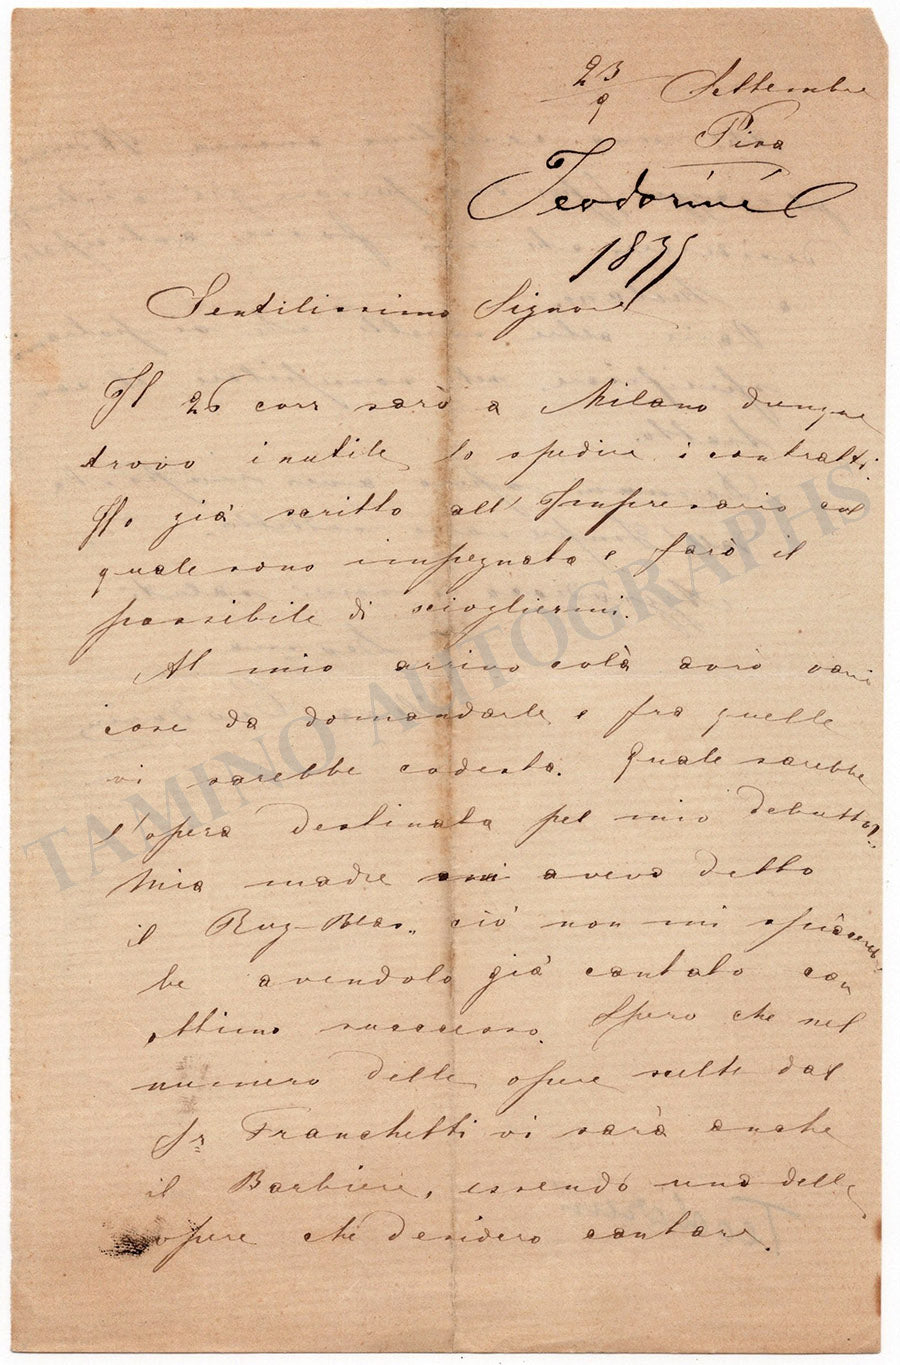 23 Settembre
9
Pisa
Teodorini
Gentilissimo Signore
Il 26 corr sarò a Milano dunque
trovo inutile lo spedire i contratti.
Ho già scritto all' Impresario col
quale sono impegnata e farò il
possibile di sciogliermi.
Al mio arrivo colà avrò varie
cose da domandarle e fra quelle
vi sarebbe codesta. Quale sarebbe
l'opera destinata pel mio debutto?
Mia madre mi aveva detto
il Ruy-Blas„ ciò non mi spiacereb-
be avendolo già cantato con
ottimo successo. Spero che nel
numero delle opere scelte dal
Sr Franchetti vi sarà anche
il Barbiere, essendo una delle
opere che desidero cantare.
TAMINO AUTOGRAPHS